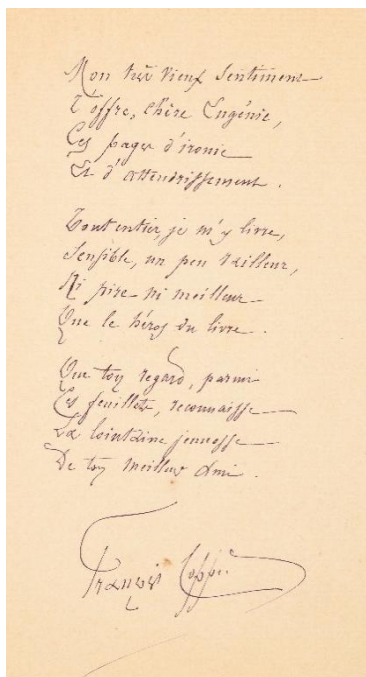 Mon très vieux sentiment
T'offre, chère Eugénie,
Ces pages d'ironie
Et d'attendrissement.
Tout entier, je m'y livre,
Sensible, un peu railleur,
Ni pire ni meilleur
Que le héros du livre.
Que ton regard, parmi
Ces feuillets, reconnaisse
La lointaine jeunesse
De ton meilleur ami.
François Coppée